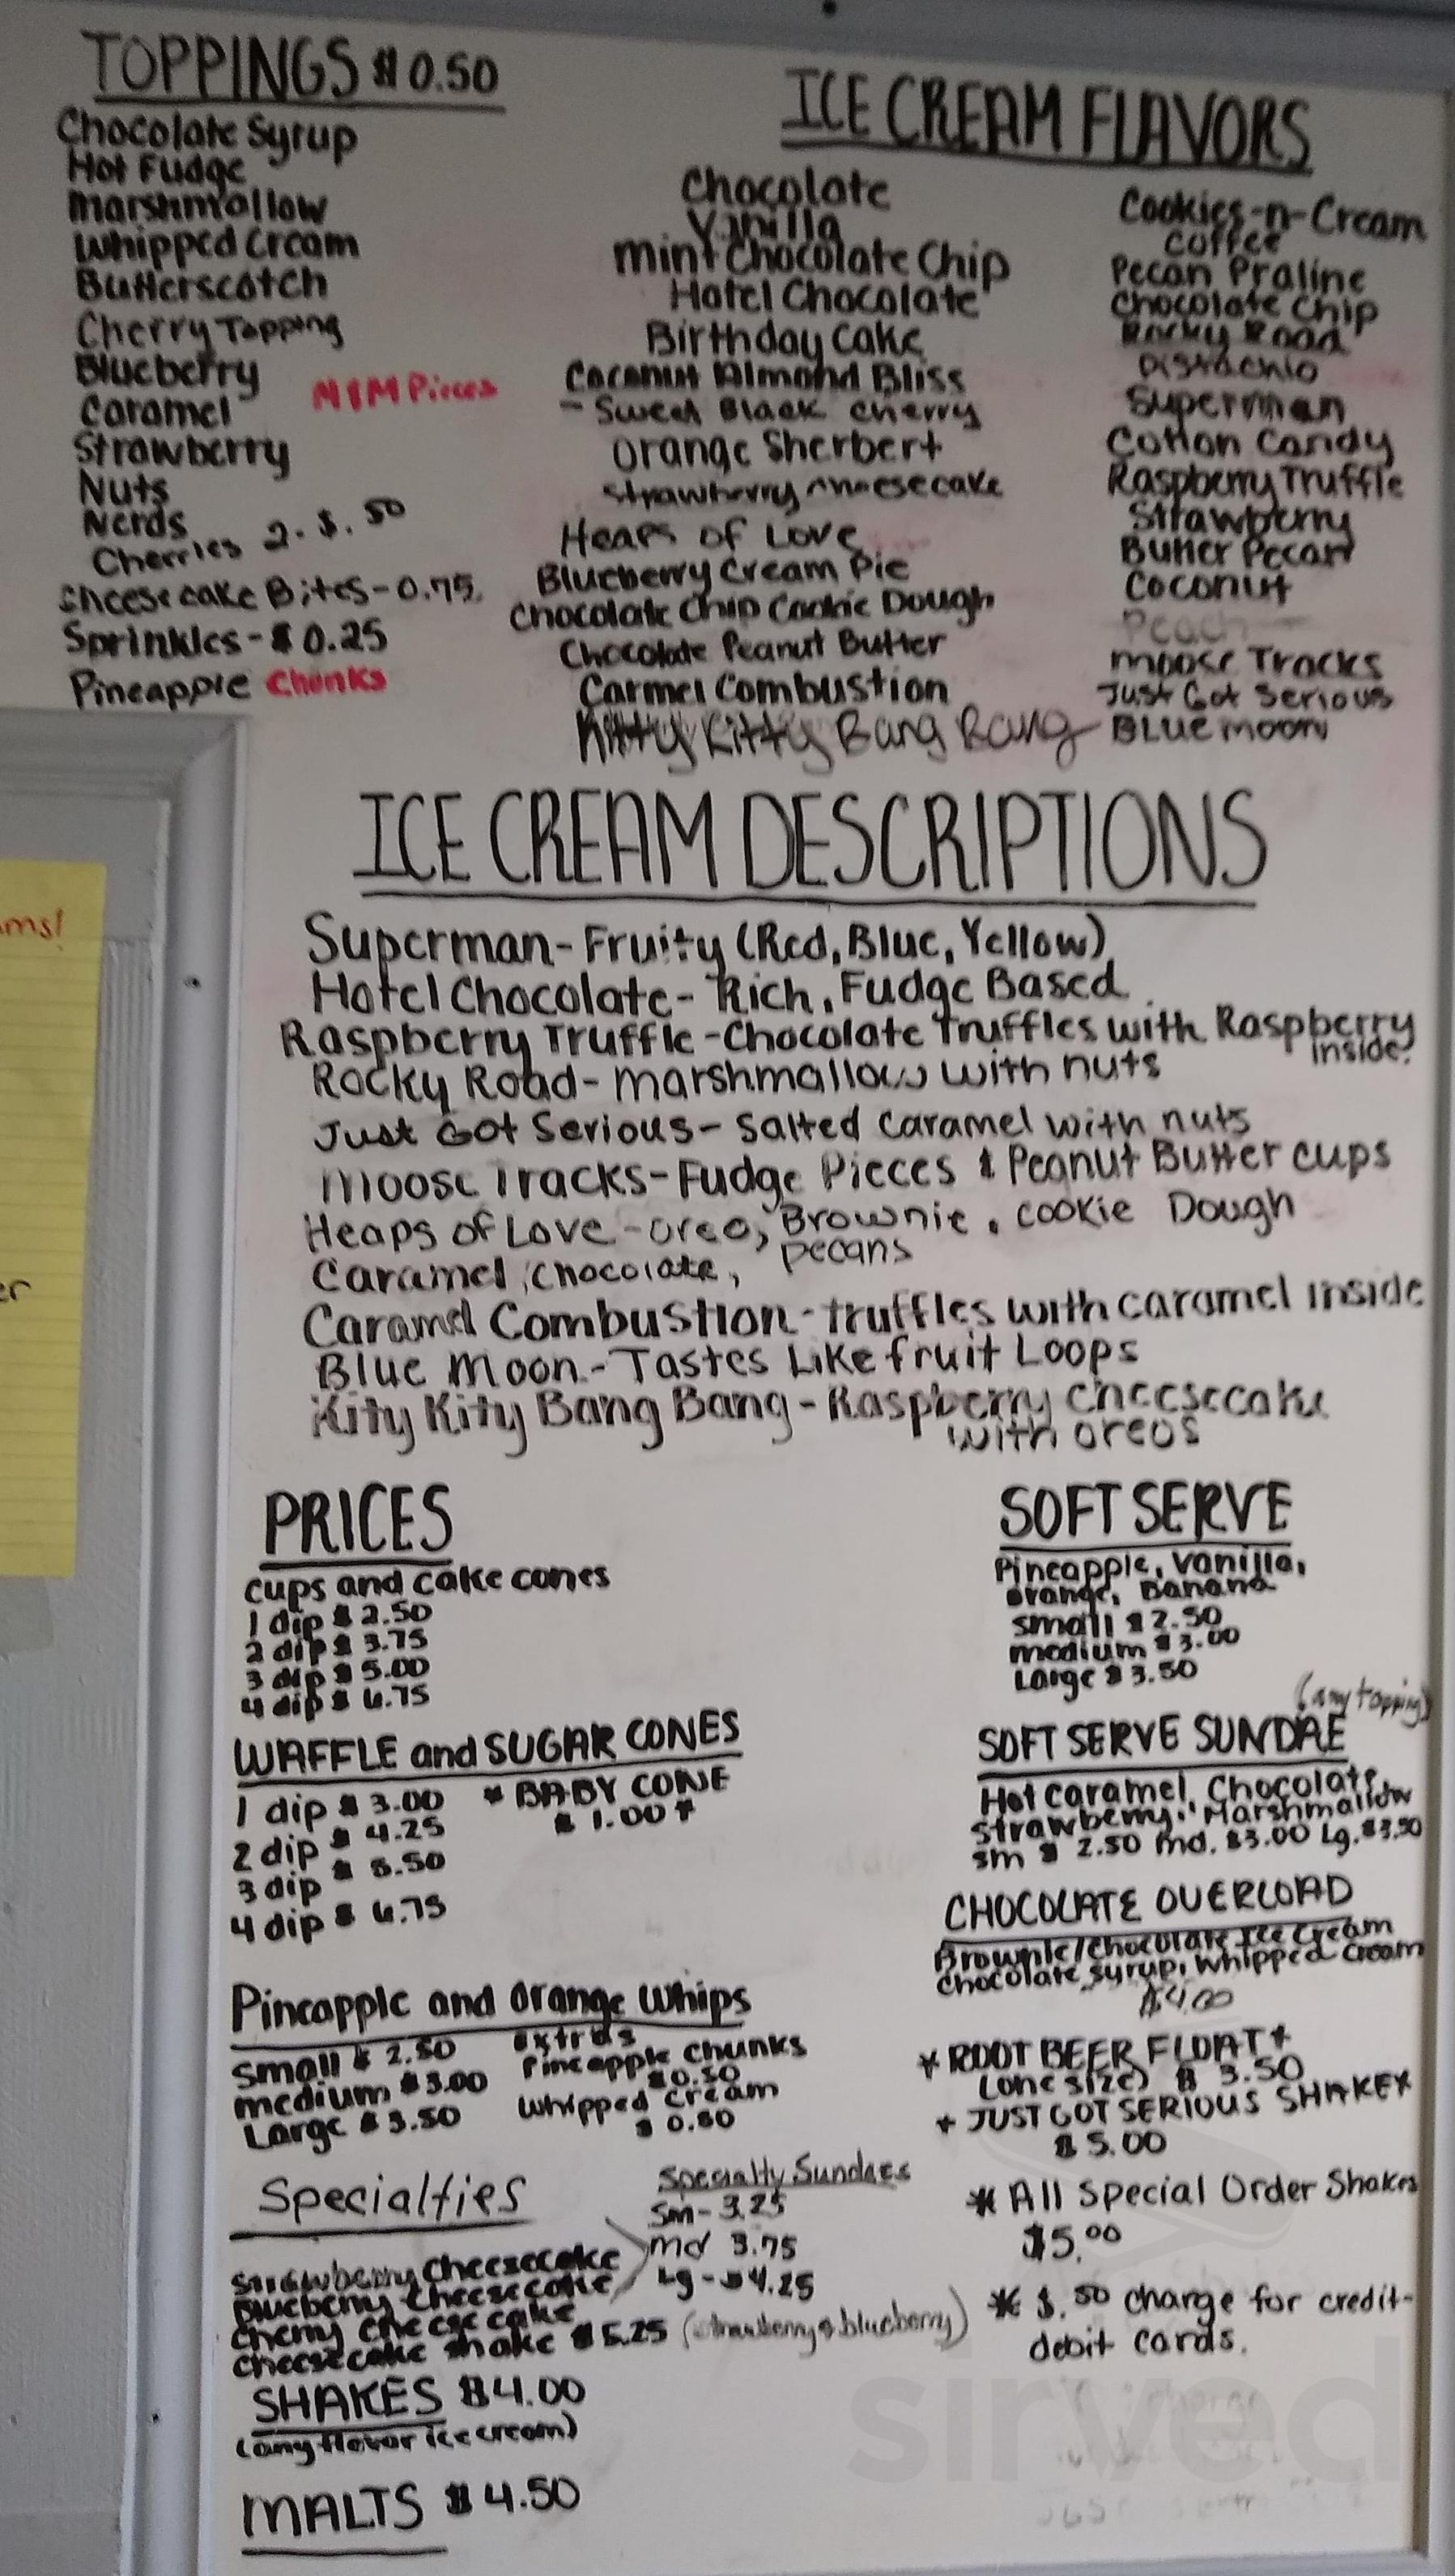 TOPPINGS $0.50
Chocolate Syrup
Hot Fudge
Marshmallow
Whipped Cream
Butterscotch
Cherry Topping
Blueberry
M&M Pieces
Caramel
Strawberry
Nuts
Nerds
Cherries 2-$.50
Cheesecake Bites-0.75
Sprinkles-$0.25
Pineapple Chunks
ICE CREAM FLAVORS
Chocolate
Vanilla
Mint Chocolate Chip
Hotel Chocolate
Birthday Cake
Coconut Almond Bliss
- Sweet Black Cherry
Orange Sherbert
Strawberry Cheesecake
Heaps of Love
Blueberry Cream Pie
Chocolate Chip Cookie Dough
Chocolate Peanut Butter
Carmel Combustion
Kitty Kitty Bang Bang
Cookies-n-Cream
Coffee
Pecan Praline
Chocolate Chip
Rocky Road
Pistachio
Superman
Cotton Candy
Raspberry Truffle
Strawberry
Butter Pecan
Coconut
Peach
Moose Tracks
Just Got Serious
BLUE moon
ICE CREAM DESCRIPTIONS
Superman-Fruity (Red, Blue, Yellow)
Hotel Chocolate- Rich, Fudge Based
Raspberry Truffle-Chocolate Truffles with Raspberry
inside.
Rocky Road- Marshmallow with nuts
Just Got Serious- Salted Caramel with nuts
Moose Tracks-Fudge Pieces & Peanut Butter cups
Heaps of Love -oreo, Brownie, cookie Dough
Caramel, chocolate, pecans
Caramel Combustion-truffles with caramel inside
Blue Moon-Tastes Like fruit Loops
Kity Kity Bang Bang-Raspberry cheesecake
with oreos
PRICES
cups and cake cones
1 dip $2.50
2 dip $3.75
3 dip $5.00
4 dip $6.75
WAFFLE and SUGAR CONES
1 dip $3.00
2 dip $4.25
3 dip $5.50
4 dip $6.75
* BABY CONE
$1.00 *
Pineapple and Orange Whips
Small $2.50
medium $3.00
Large $3.50
Extras
Pineapple Chunks
$0.50
Whipped Cream
$0.50
Specialties
Strawberry Cheesecake
Blueberry Cheesecake
Cherry Cheesecake
Cheesecake Shake $5.25 (strawberry & blueberry)
Specialty Sundaes
Sm- 3.25
md 3.75
Lg-$4.25
SHAKES $4.00
(any flavor ice cream)
MALTS $4.50
SOFT SERVE
Pineapple, Vanilla,
orange, Banana
small $2.50
medium $3.00
Large $3.50
(any topping)
SOFT SERVE SUNDAE
Hot caramel, Chocolate,
Strawberry, Marshmallow
sm $2.50 md. $3.00 Lg. $3.50
CHOCOLATE OVERLOAD
Brownie/Chocolate Ice Cream
Chocolate syrup, Whipped Cream
$4.00
* ROOT BEER FLOAT *
(one size) $3.50
* JUST GOT SERIOUS SHAKE*
$5.00
* All Special Order Shakes
$5.00
* $.50 charge for credit-
debit cards.
ms!
er
sirved